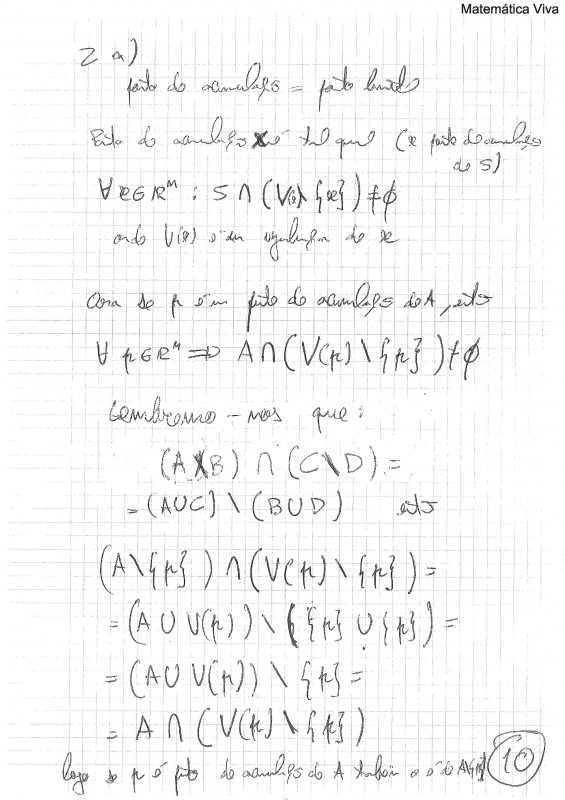 Matemática Viva
2 a)
ponto de acumulação = ponto limite
Ponto de acumulação x é tal que (x ponto de acumulação
de S)
∀ x∈ℝⁿ : S ∩ (V(x) \ {x}) ≠ ∅
onde V(x) é uma vizinhança de x
Ora se p é um ponto de acumulação de A, então
∀ p∈ℝⁿ ⟹ A ∩ (V(p) \ {p}) ≠ ∅
Lembremo-nos que:
(A \ B) ∩ (C \ D) =
= (A ∪ C) \ (B ∪ D) então
(A \ {p}) ∩ (V(p) \ {p}) =
= (A ∪ V(p)) \ ({p} ∪ {p}) =
= (A ∪ V(p)) \ {p} =
= A ∩ (V(p) \ {p})
logo se p é ponto de acumulação de A também o é de A\{p}
10